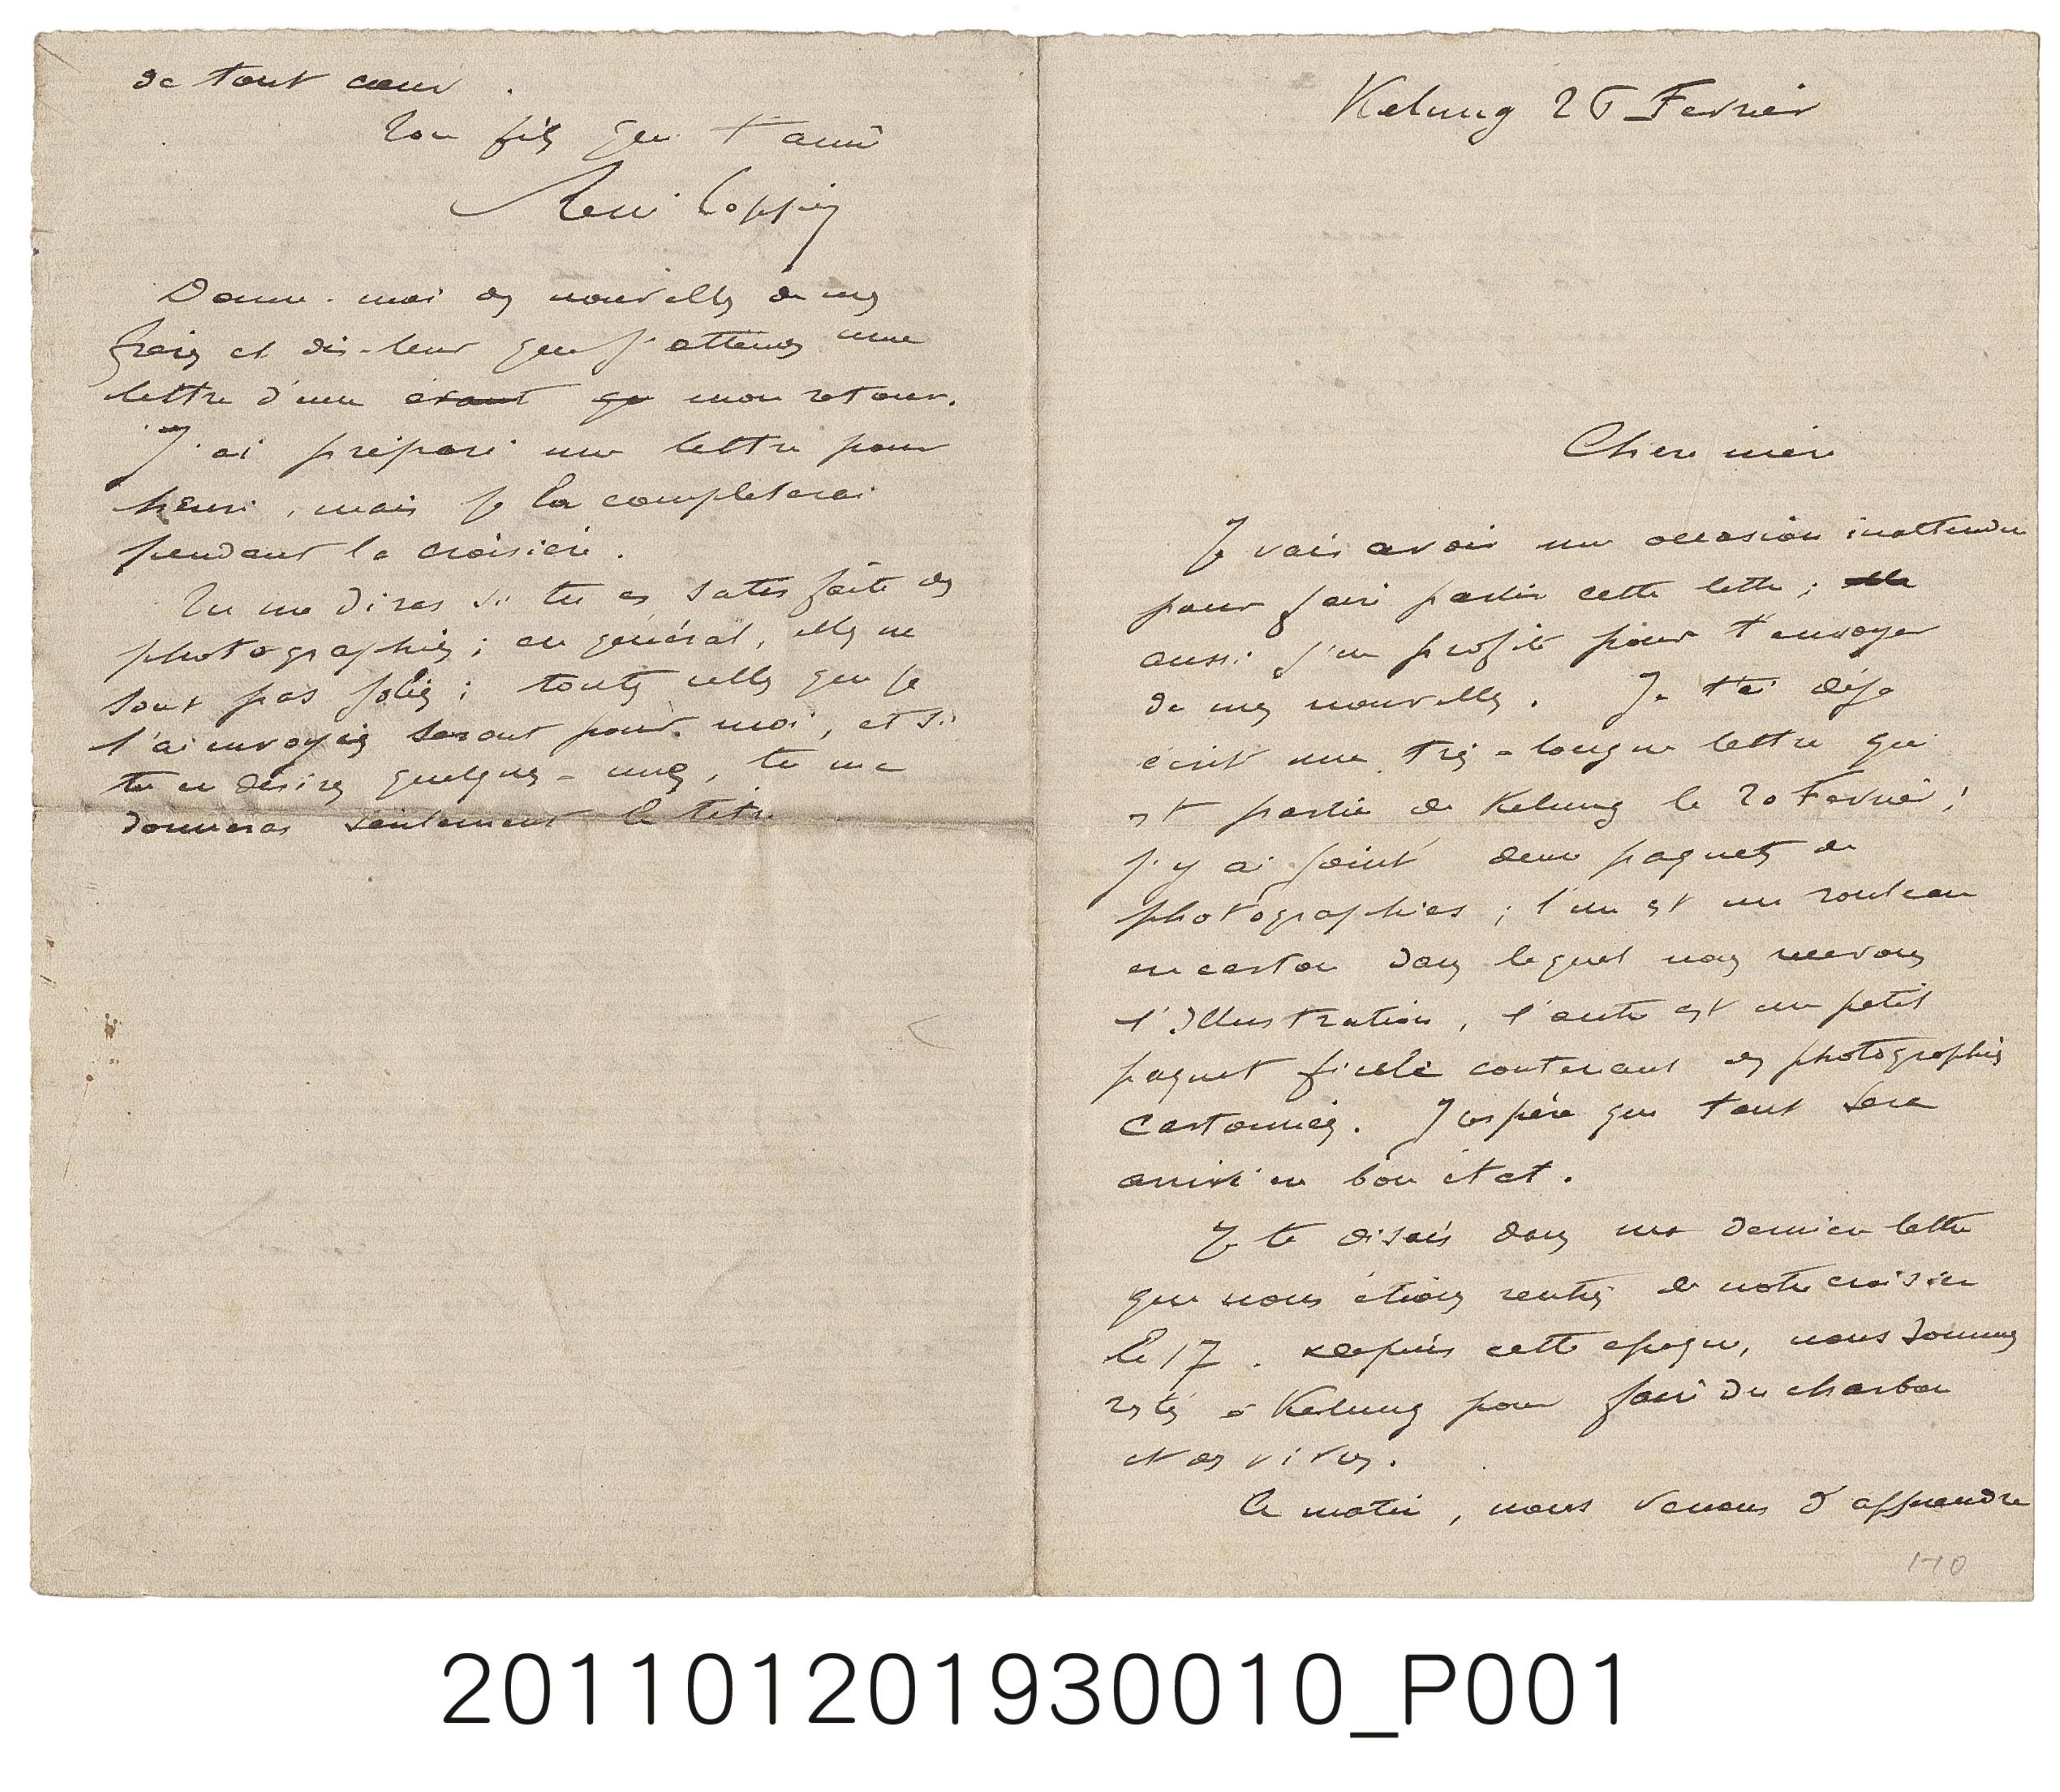 Kelung 26 Fevrier
Chere mère
Je vais avoir une occasion inattendue
pour faire partir cette lettre ;
aussi j'en profite pour t'envoyer
de mes nouvelles. Je t'ai déja
écrit une très-longue lettre qui
est partie de Kelung le 20 Fevrier ;
j'y ai joint deux paquets de
photographies ; l'un est un rouleau
en carton dans lequel nous recevons
l'Illustration, l'autre est un petit
paquet ficelé contenant des photographies
cartonnées. J'espère que tout sera
arrivé en bon état.
Je te disais dans ma dernière lettre
que nous étions rentrés de notre croisière
le 17. depuis cette époque, nous sommes
restés à Kelung pour faire du charbon
et des vivres.
Ce matin, nous venons d'apprendre
110
de tout cœur.
Ton fils qui t'aime
René Coppin
Donne-moi des nouvelles de mes
frères et dis-leur que j'attends une
lettre d'eux avant que mon retour.
J'ai préparé une lettre pour
henri, mais je la completerai
pendant la croisière.
Tu me diras si tu es satisfaite des
photographies ; en général, elles ne
sont pas jolies ; toutes celles que je
t'ai envoyées seront pour moi, et si
tu en désires quelques-unes, tu me
donneras seulement le titre
201101201930010_P001